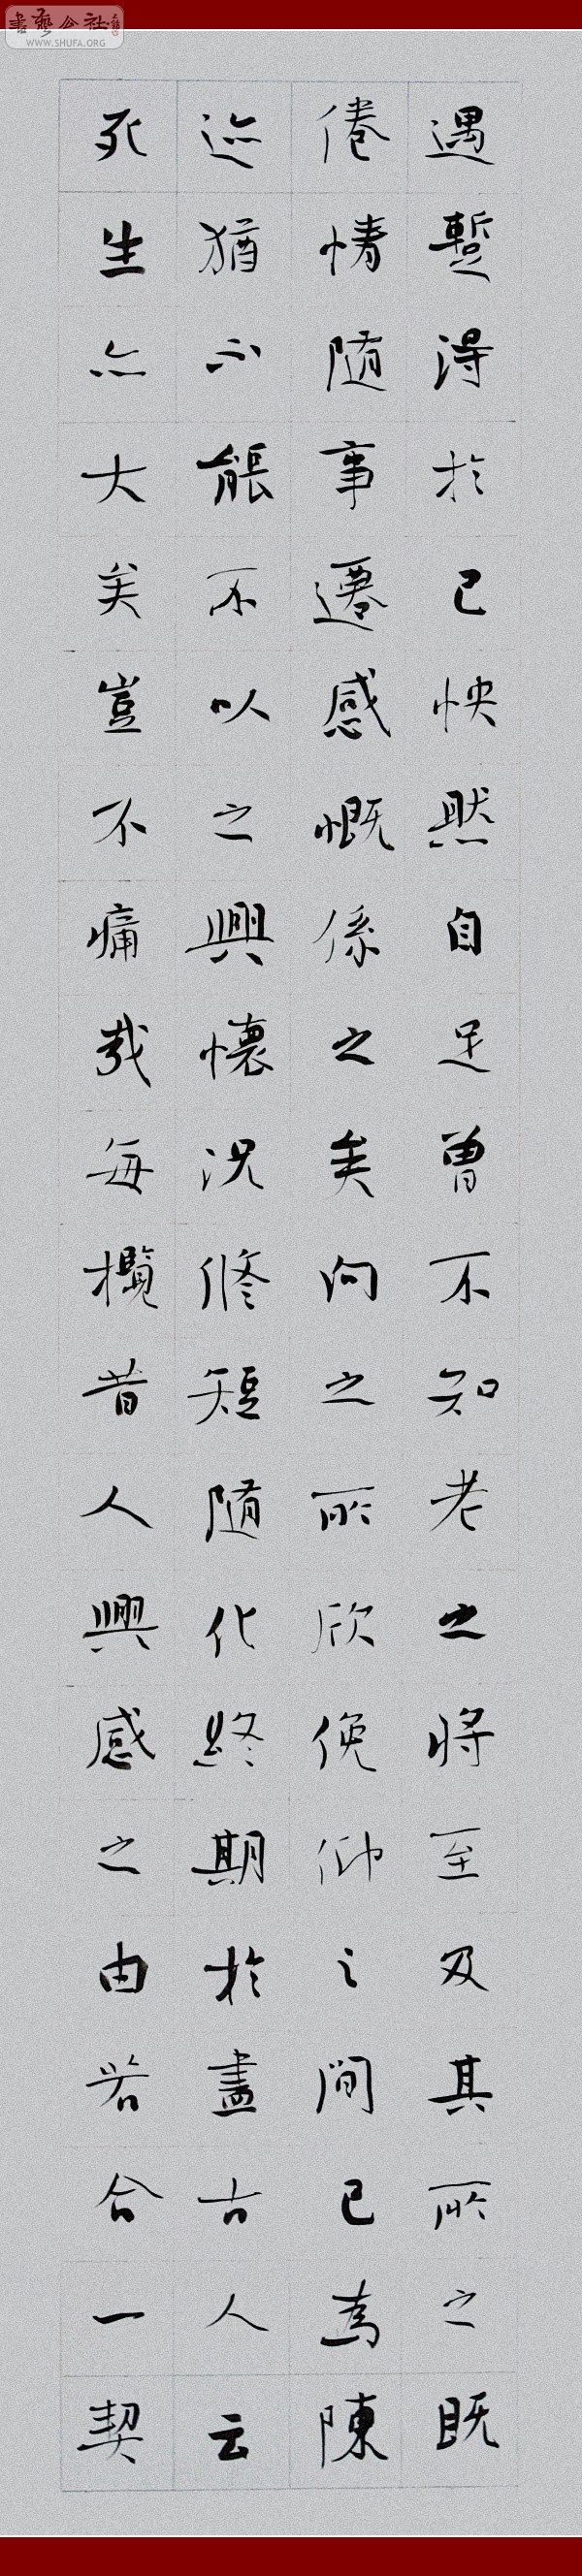 書藝公社
WWW.SHUFA.ORG
遇蹔得於己怏然自足曾不知老之將至及其所之既
倦情隨事遷感慨係之矣向之所欣俛仰之間已為陳
迹猶不能不以之興懷況修短隨化終期於盡古人云
死生亦大矣豈不痛哉每攬昔人興感之由若合一契